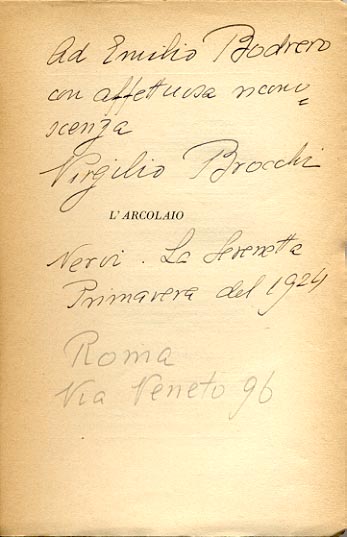 Ad Emilio Bodrero
con affettuosa ricono=
scenza
Virgilio Brocchi
L'ARCOLAIO
Nervi. La Serenetta
Primavera del 1924
Roma
Via Veneto 96